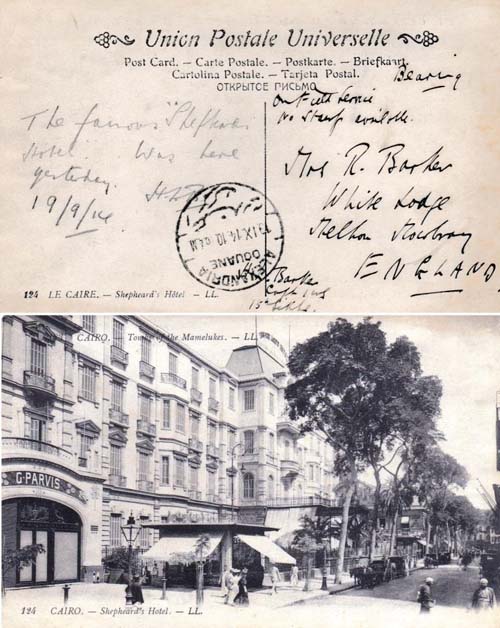 Union Postale Universelle
Post Card. — Carte Postale. — Postkarte. — Briefkaart.
Cartolina Postale. — Tarjeta Postal.
ОТКРЫТОЕ ПИСЬМО
Bearing
On Field Service
No Stamp available.
The famous "Shepheards
Hotel was here
yesterday.
19/9/14
Mrs R. Barker
White Lodge
Melton Mowbray
ENGLAND
ALEXANDRIA
DOUANE
Barker
124 LE CAIRE. — Shepheard's Hôtel — LL.
CAIRO. Tombs of the Mamelukes. — LL
G. PARVIS
124 CAIRO. — Shepheard's Hotel. — LL.